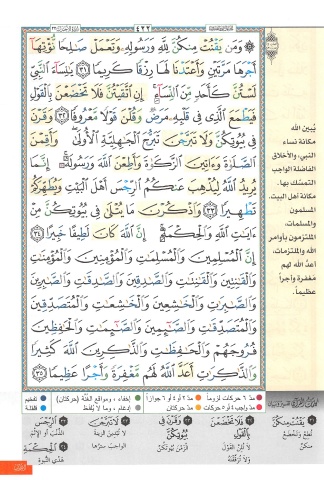 ٤٢٢
۞ وَمَن يَقْنُتْ مِنكُنَّ لِلَّهِ وَرَسُولِهِۦ وَتَعْمَلْ صَٰلِحًا نُّؤْتِهَآ
أَجْرَهَا مَرَّتَيْنِ وَأَعْتَدْنَا لَهَا رِزْقًا كَرِيمًا ٣١ يَٰنِسَآءَ ٱلنَّبِىِّ
لَسْتُنَّ كَأَحَدٍ مِّنَ ٱلنِّسَآءِ إِنِ ٱتَّقَيْتُنَّ فَلَا تَخْضَعْنَ بِٱلْقَوْلِ
فَيَطْمَعَ ٱلَّذِى فِى قَلْبِهِۦ مَرَضٌ وَقُلْنَ قَوْلًا مَّعْرُوفًا ٣٢ وَقَرْنَ
فِى بُيُوتِكُنَّ وَلَا تَبَرَّجْنَ تَبَرُّجَ ٱلْجَٰهِلِيَّةِ ٱلْأُولَىٰ وَأَقِمْنَ
ٱلصَّلَوٰةَ وَءَاتِينَ ٱلزَّكَوٰةَ وَأَطِعْنَ ٱللَّهَ وَرَسُولَهُۥٓ إِنَّمَا
يُرِيدُ ٱللَّهُ لِيُذْهِبَ عَنكُمُ ٱلرِّجْسَ أَهْلَ ٱلْبَيْتِ وَيُطَهِّرَكُمْ
تَطْهِيرًا ٣٣ وَٱذْكُرْنَ مَا يُتْلَىٰ فِى بُيُوتِكُنَّ مِنْ
ءَايَٰتِ ٱللَّهِ وَٱلْحِكْمَةِ إِنَّ ٱللَّهَ كَانَ لَطِيفًا خَبِيرًا ٣٤
إِنَّ ٱلْمُسْلِمِينَ وَٱلْمُسْلِمَٰتِ وَٱلْمُؤْمِنِينَ وَٱلْمُؤْمِنَٰتِ
وَٱلْقَٰنِتِينَ وَٱلْقَٰنِتَٰتِ وَٱلصَّٰدِقِينَ وَٱلصَّٰدِقَٰتِ وَٱلصَّٰبِرِينَ
وَٱلصَّٰبِرَٰتِ وَٱلْخَٰشِعِينَ وَٱلْخَٰشِعَٰتِ وَٱلْمُتَصَدِّقِينَ
وَٱلْمُتَصَدِّقَٰتِ وَٱلصَّٰٓئِمِينَ وَٱلصَّٰٓئِمَٰتِ وَٱلْحَٰفِظِينَ
فُرُوجَهُمْ وَٱلْحَٰفِظَٰتِ وَٱلذَّٰكِرِينَ ٱللَّهَ كَثِيرًا
وَٱلذَّٰكِرَٰتِ أَعَدَّ ٱللَّهُ لَهُم مَّغْفِرَةً وَأَجْرًا عَظِيمًا ٣٥
يُبين الله
مكانة نساء
النبي، والأخلاق
الفاضلة الواجب
التمسك بها.
مكانة أهل البيت.
المسلمون
والمسلمات،
الملتزمون بأوامر
الله والملتزمات،
أعدّ الله لهم
مغفرة وأجراً
عظيماً.
مدّ ٦ حركات لزوماً
مدّ ٢ أو ٤ أو ٦ جوازاً
إخفاء، ومواقع الغُنَّة (حركتان)
تفخيم
مدّ حركتان
إدغام، وما لا يُلفظ
قلقلة
يَقْنُتْ مِنكُنَّ
فَلَا تَخْضَعْنَ
بِٱلْقَوْلِ
وَقَرْنَ فِى
بُيُوتِكُنَّ
ٱلرِّجْسَ
ٱلْحِكْمَةِ